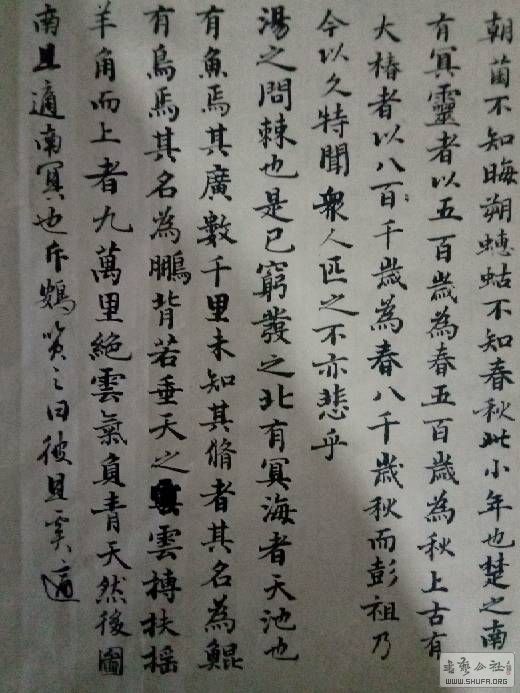 朝菌不知晦朔蟪蛄不知春秋此小年也楚之南
有冥靈者以五百歲為春五百歲為秋上古有
大椿者以八百千歲為春八千歲秋而彭祖乃
今以久特聞衆人匹之不亦悲乎
湯之問棘也是已窮發之北有冥海者天池也
有魚焉其廣數千里未知其脩者其名為鯤
有鳥焉其名為鵬背若垂天之雲摶扶搖
羊角而上者九萬里絕雲氣負青天然後圖
南且適南冥也斥鴳笑之曰彼且奚適
书艺公社
WWW.SHUFA.ORG